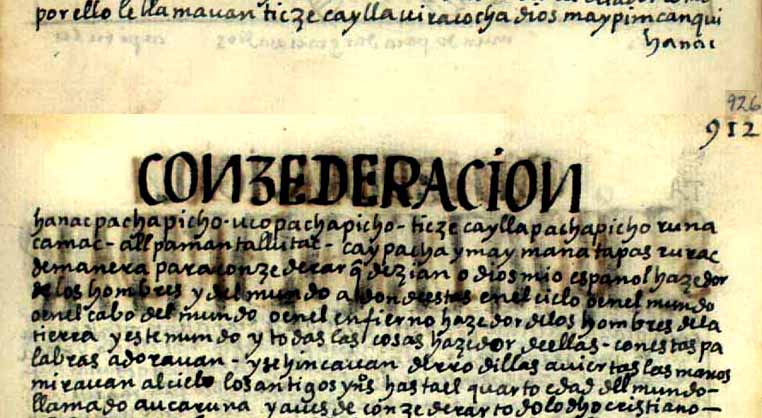 por ello le llamauan ticze caylla uiracocha dios maypim canqui
hanac
926
912
CONZEDERACION
hanac pachapicho - uco pachapicho - ticze caylla pachapicho runa
camac - allpamanta llutac - cay pacha ymaymana tapas rurac
de manera para conzederar q̃ dezian o dios mio español hazedor
de los hombres y del mundo adonde estas en el cielo o en el mundo
o en el cabo del mundo o en el enfierno hazedor de los hombres de la
tierra y este mundo y todas las cosas hazedor de ellas - con estas pa
labras adorauan - y se hincauan de rrodillas auiertas las manos
mirauan al cielo los antigos yn̄s hasta el quarto edad del mundo -
llamado aucaruna y aues de conzederar todo lo dho cristiano -